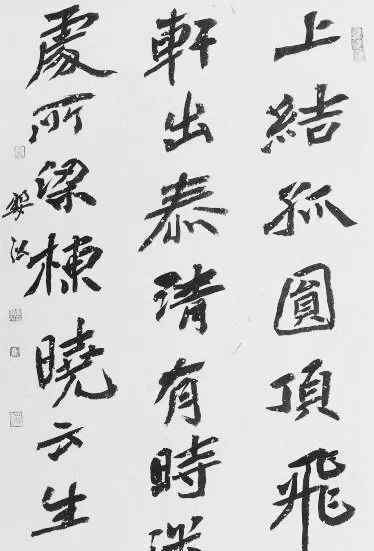 上結孤圓頂飛
軒出泰清有時
處所梁棟曉云生